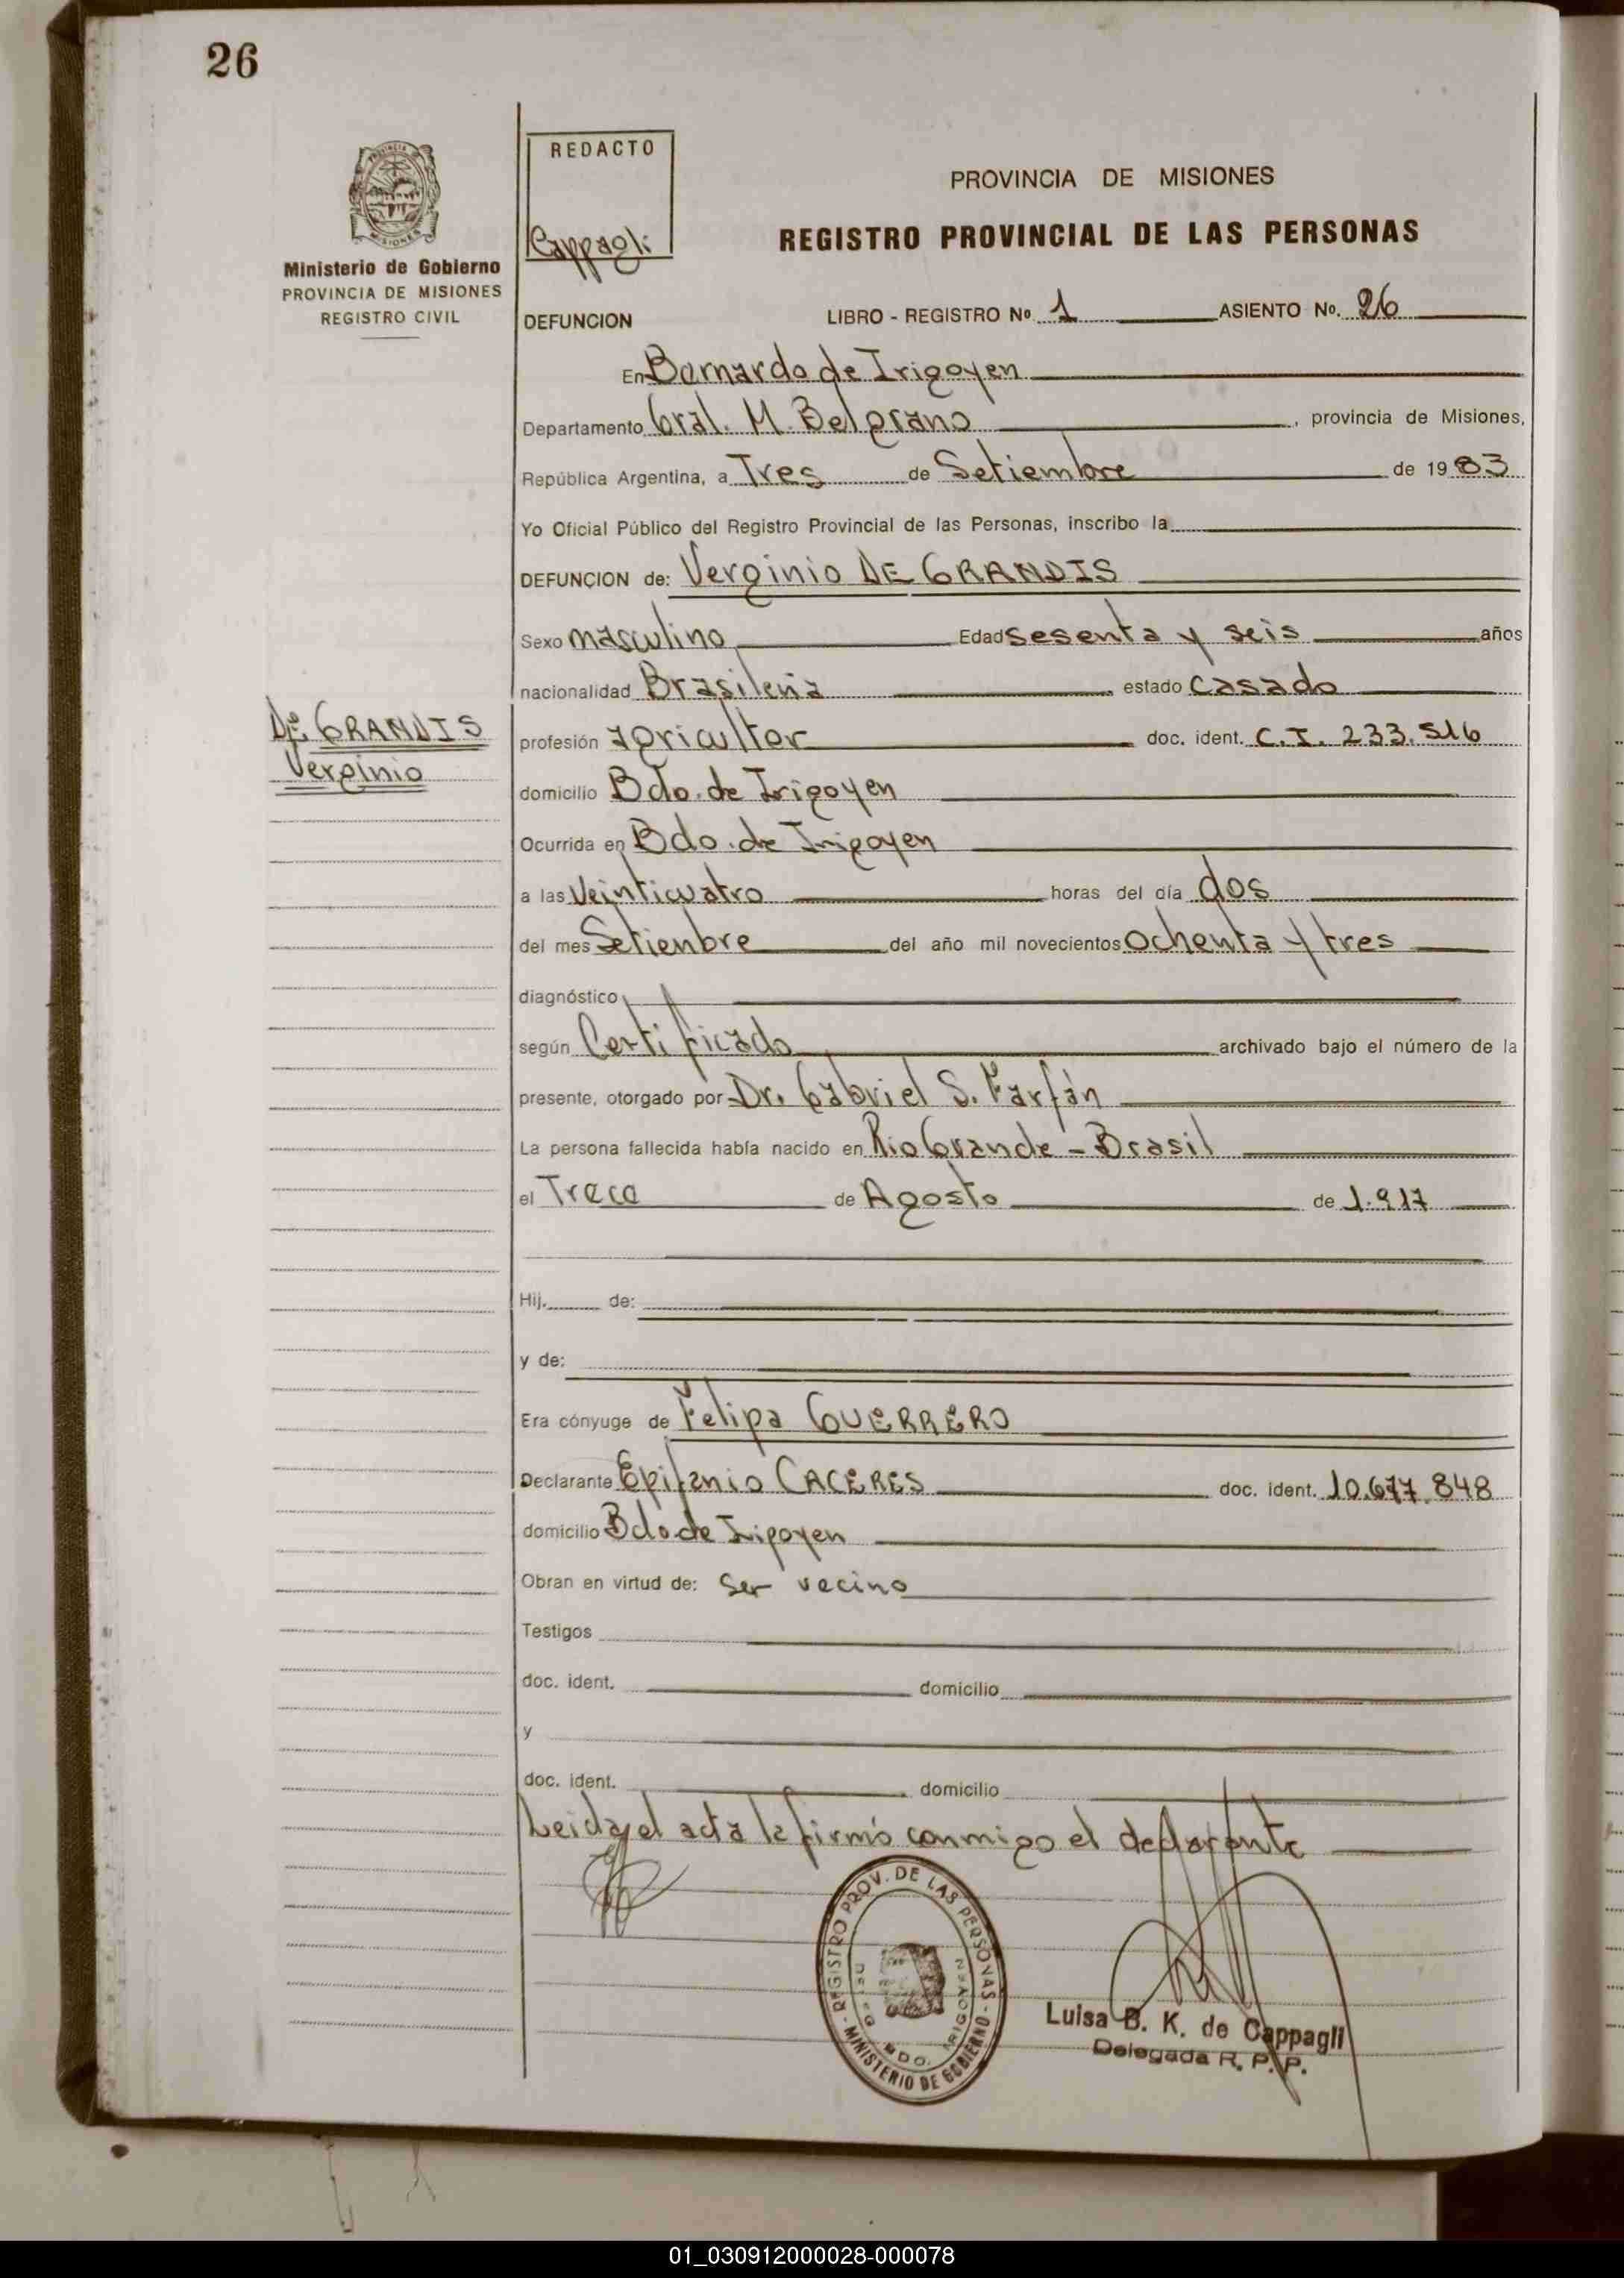 26
REDACTO
Cappagli
Ministerio de Gobierno
PROVINCIA DE MISIONES
REGISTRO CIVIL
PROVINCIA DE MISIONES
REGISTRO PROVINCIAL DE LAS PERSONAS
DEFUNCION LIBRO - REGISTRO Nº 1 ASIENTO No. 26
En Bernardo de Irigoyen
Departamento Gral. M. Belgrano, provincia de Misiones,
República Argentina, a Tres de Setiembre de 1983
Yo Oficial Público del Registro Provincial de las Personas, inscribo la
DEFUNCION de: Verginio DE GRANDIS
Sexo masculino Edad sesenta y seis años
nacionalidad Brasileña estado casado
DE GRANDIS
Verginio
profesión agricultor doc. ident. C.I. 233.516
domicilio Bdo. de Irigoyen
Ocurrida en Bdo. de Irigoyen
a las Veinticuatro horas del día dos
del mes Setienbre del año mil novecientos ochenta y tres
diagnóstico
según Certificado archivado bajo el número de la
presente, otorgado por Dr. Gabriel S. Farfán
La persona fallecida había nacido en Rio Grande - Brasil
el Trece de Agosto de 1.917
Hij. de:
y de:
Era cónyuge de Felipa GUERRERO
Declarante Epifanio CACERES doc. ident. 10.677.848
domicilio Bdo de Irigoyen
Obran en virtud de: Ser vecino
Testigos
doc. ident. domicilio
y
doc. ident. domicilio
Leida el acta la firmó conmigo el declarante
REGISTRO PROV. DE LAS PERSONAS - MINISTERIO DE GOBIERNO -
BDO. IRIGOYEN
Luisa B. K. de Cappagli
Delegada R. P. P.
01_030912000028-000078